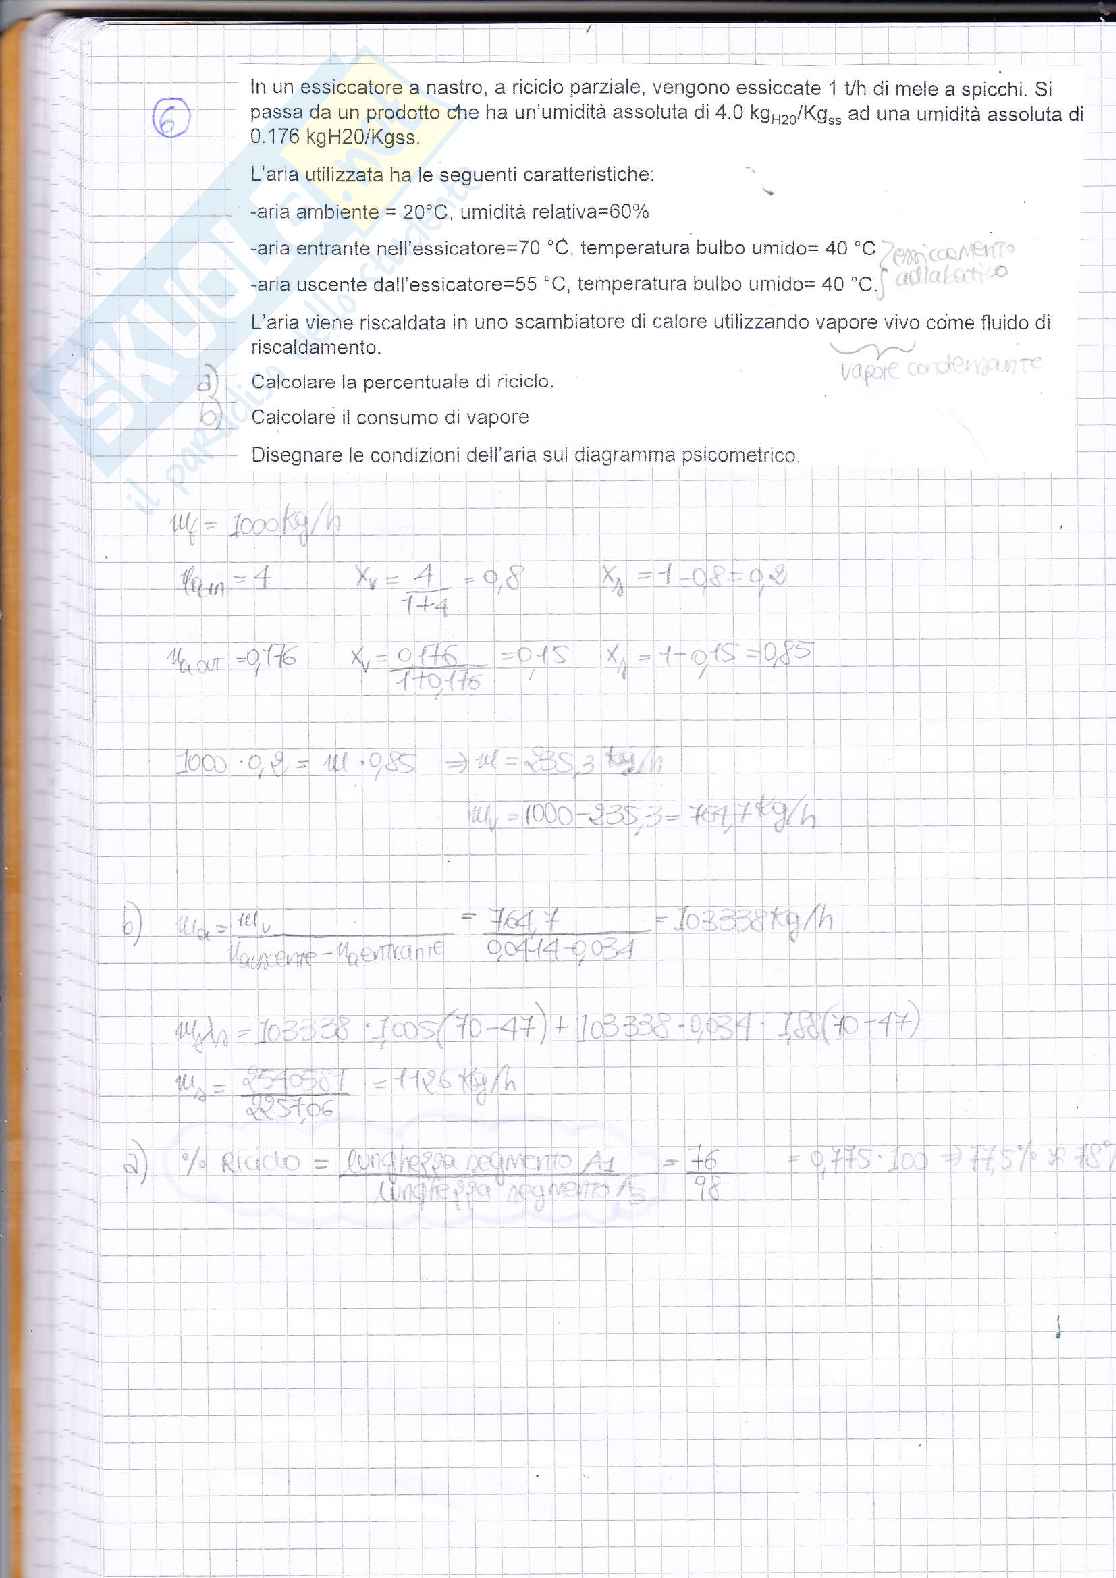 6
In un essiccatore a nastro, a riciclo parziale, vengono essiccate 1 t/h di mele a spicchi. Si
passa da un prodotto che ha un'umidità assoluta di 4.0 kgH20/Kgss ad una umidità assoluta di
0.176 kgH20/Kgss.
L'aria utilizzata ha le seguenti caratteristiche:
-aria ambiente = 20°C, umidità relativa=60%
-aria entrante nell'essicatore=70 °C, temperatura bulbo umido= 40 °C
-aria uscente dall'essicatore=55 °C, temperatura bulbo umido= 40 °C.
essiccamento
adiabatico
L'aria viene riscaldata in uno scambiatore di calore utilizzando vapore vivo come fluido di
riscaldamento.
vapore condensante
a) Calcolare la percentuale di riciclo.
b) Calcolare il consumo di vapore
Disegnare le condizioni dell'aria sul diagramma psicometrico.
SKUOLA.net
il paradiso dello studente
mf = 1000 kg/h
= 4 Xv = 4/(1+4) = 0,8 Xs = 1-0,8 = 0,2
ua out = 0,176 Xv = 0,176/(1+0,176) = 0,15 Xs = 1-0,15 = 0,85
1000 · 0,2 = m · 0,85 ⇒ m = 235,3 kg/h
mv = 1000-235,3 = 764,7 kg/h
b) ma = mv/(ua uscente - ua entrante) = 764,7/(0,0414-0,034) = 103338 kg/h
msλn = 103338 · 1,005(70-47) + 103338 · 0,034 · 1,88(70-47)
ms = 2540581/2257,06 = 1126 kg/h
a) % Riciclo = lunghezza segmento A1/lunghezza segmento = 76/98 = 0,775 · 100 ⇒ 77,5% ≈ 78%